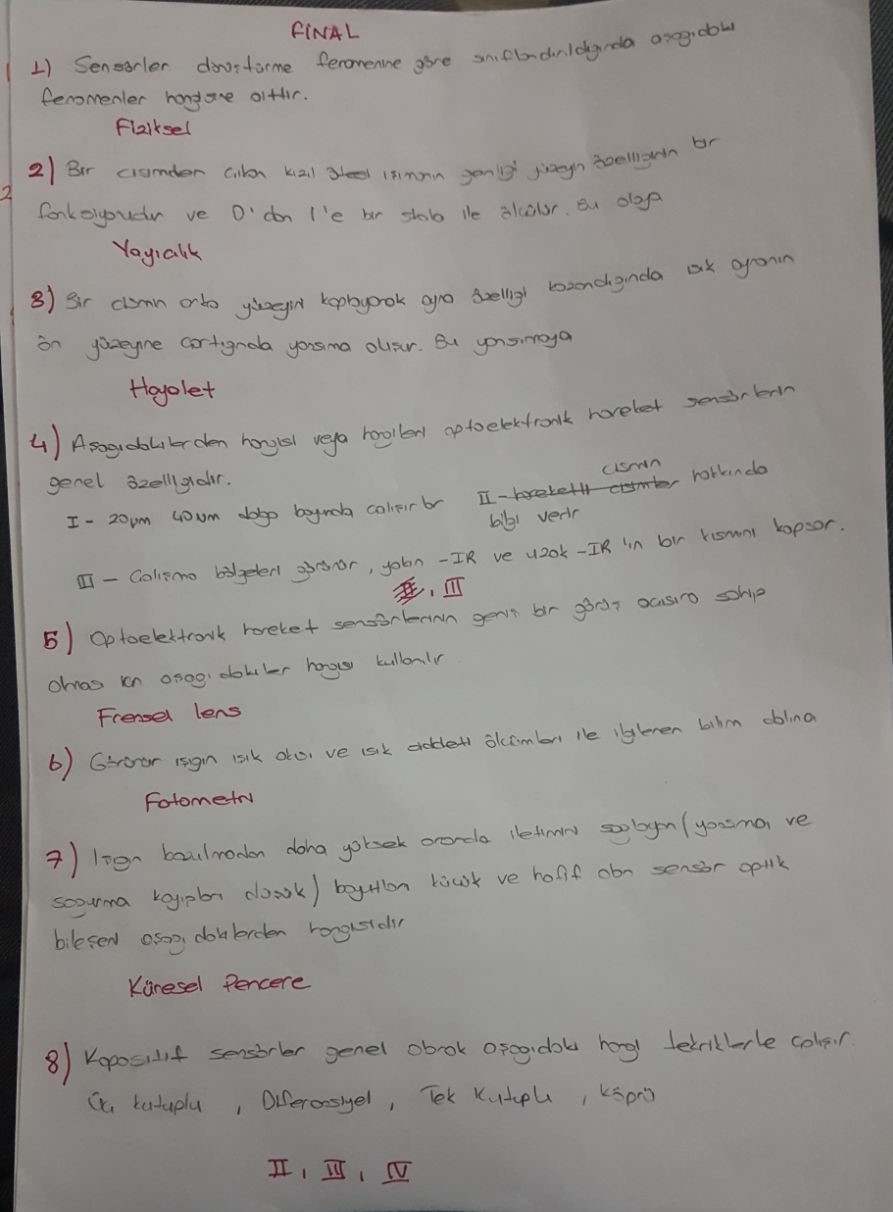 FİNAL
1) Sensörler dönüştürme fenomenine göre sınıflandırıldığında aşağıdaki
fenomenler hangisine aittir.
Fiziksel
2) Bir cisimden çıkan kızıl ötesi ışınımın genliği yüzeyin özelliğinin bir
fonksiyonudur ve 0'dan 1'e bir skala ile ölçülür. Bu olaya
Yayıcılık
3) Bir cismin arka yüzeyini kaplayarak ayna özelliği kazandığında ışık aynanın
ön yüzeyine çarptığında yansıma oluşur. Bu yansımaya
Hayalet
4) Aşağıdakilerden hangisi veya hangileri optoelektronik hareket sensörlerin
genel özelliğidir.
I - 20µm 40µm dalga boyunda çalışır br
II - cismin hakkında
bilgi verir
III - Çalışma bölgeleri görünür, yakın -IR ve uzak -IR 'in bir kısmını kapsar.
, III
5) Optoelektronik hareket sensörlerinin geniş bir görüş açısına sahip
olması için aşağıdakiler hangisi kullanılır
Frensel lens
6) Görünür ışığın ışık akısı ve ışık şiddeti ölçümleri ile ilgilenen bilim dalına
Fotometri
7) Işığın bozulmadan daha yüksek oranda iletimini sağlayan (yansıma, ve
soğurma kayıpları düşük) boyutları küçük ve hafif olan sensör optik
bileşeni aşağıdakilerden hangisidir
Küresel Pencere
8) Kapasitif sensörler genel olarak aşağıdaki hangi tekniklerle çalışır.
Üç kutuplu , Diferansiyel , Tek Kutuplu , Köprü
II , III , IV